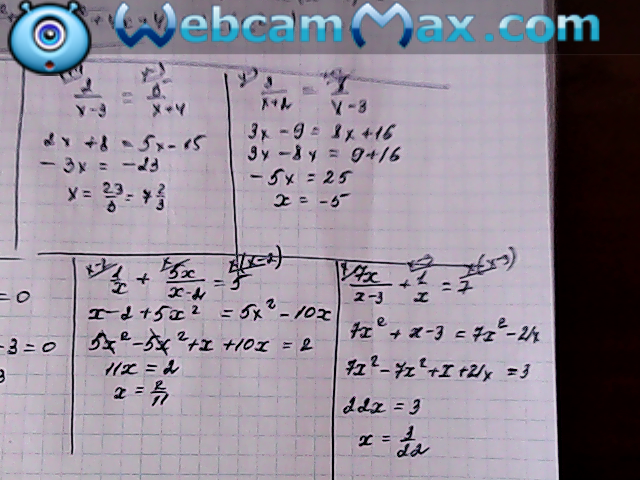 WebcamMax.com
2/(x-3) = 5/(x+4)
2x + 8 = 5x - 15
- 3x = - 23
x = 23/3 = 7 2/3
3/(x+2) = 8/(x-3)
3x - 9 = 8x + 16
3x - 8x = 9 + 16
- 5x = 25
x = -5
= 0
- 3 = 0
3
1/x + 5x/(x-2) = 5
x - 2 + 5x² = 5x² - 10x
5x² - 5x² + x + 10x = 2
11x = 2
x = 2/11
7x/(x-3) + 1/x = 7
7x² + x - 3 = 7x² - 21x
7x² - 7x² + x + 21x = 3
22x = 3
x = 3/22